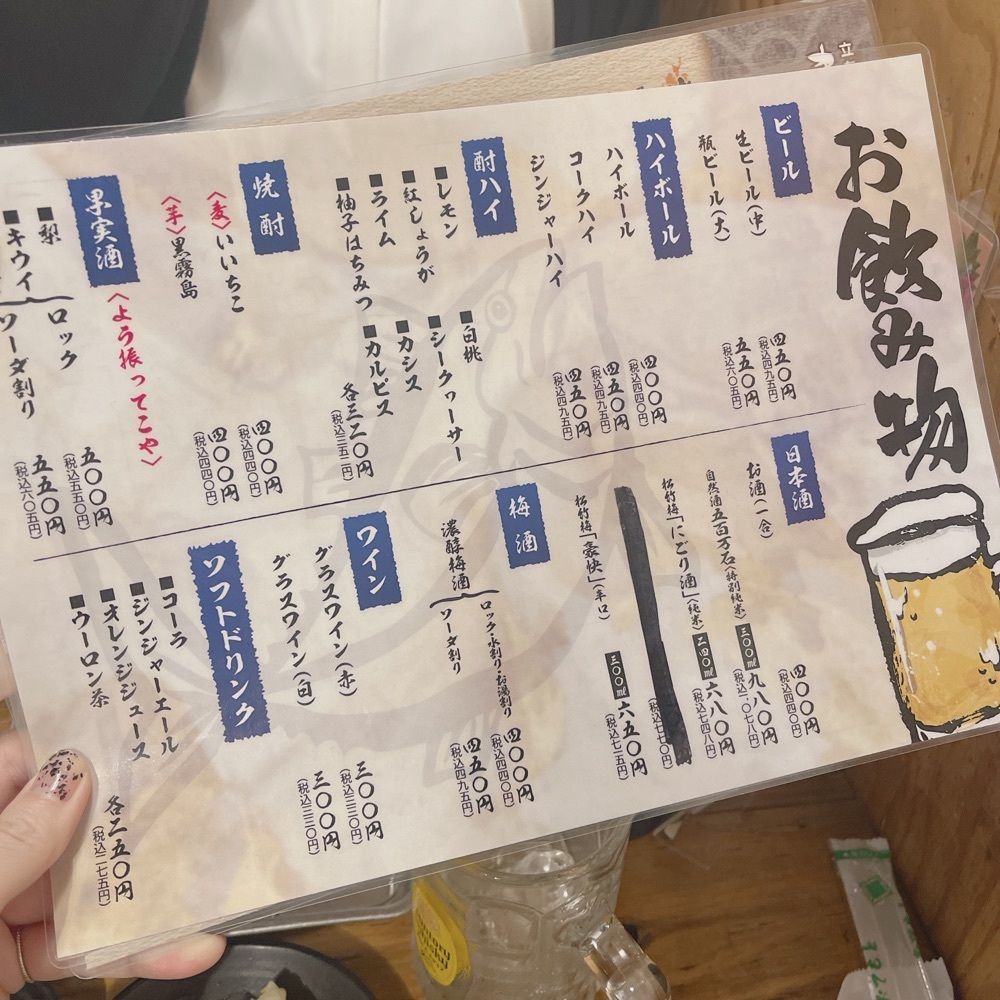 お飲み物
ビール
生ビール(中)
四五〇円
(税込四九五円)
瓶ビール(大)
五五〇円
(税込六〇五円)
ハイボール
ハイボール
四〇〇円
(税込四四〇円)
コークハイ
四五〇円
(税込四九五円)
ジンジャーハイ
四五〇円
(税込四九五円)
酎ハイ
■レモン
■紅しょうが
■ライム
■柚子はちみつ
■白桃
■シークヮーサー
■カシス
■カルピス
各三二〇円
(税込三五二円)
焼酎
〈麦〉いいちこ
四〇〇円
(税込四四〇円)
〈芋〉黒霧島
四〇〇円
(税込四四〇円)
果実酒
〈よう振ってこや〉
■梨
■キウイ
ロック
五〇〇円
(税込五五〇円)
ソーダ割り
五五〇円
(税込六〇五円)
日本酒
お酒(一合)
四〇〇円
(税込四四〇円)
自然酒五百万石(特別純米)
三〇〇ml
九八〇円
(税込一、〇七八円)
松竹梅「にごり酒」(純米)
二四〇ml
六八〇円
(税込七四八円)
(税込七七〇円)
松竹梅「豪快」(辛口)
三〇〇ml
六五〇円
(税込七一五円)
梅酒
濃醇梅酒
ロック・水割り・お湯割り
四〇〇円
(税込四四〇円)
ソーダ割り
四五〇円
(税込四九五円)
ワイン
グラスワイン(赤)
三〇〇円
(税込三三〇円)
グラスワイン(白)
三〇〇円
(税込三三〇円)
ソフトドリンク
■コーラ
■ジンジャーエール
■オレンジジュース
■ウーロン茶
各二五〇円
(税込二七五円)
立
Suntory
Whisky